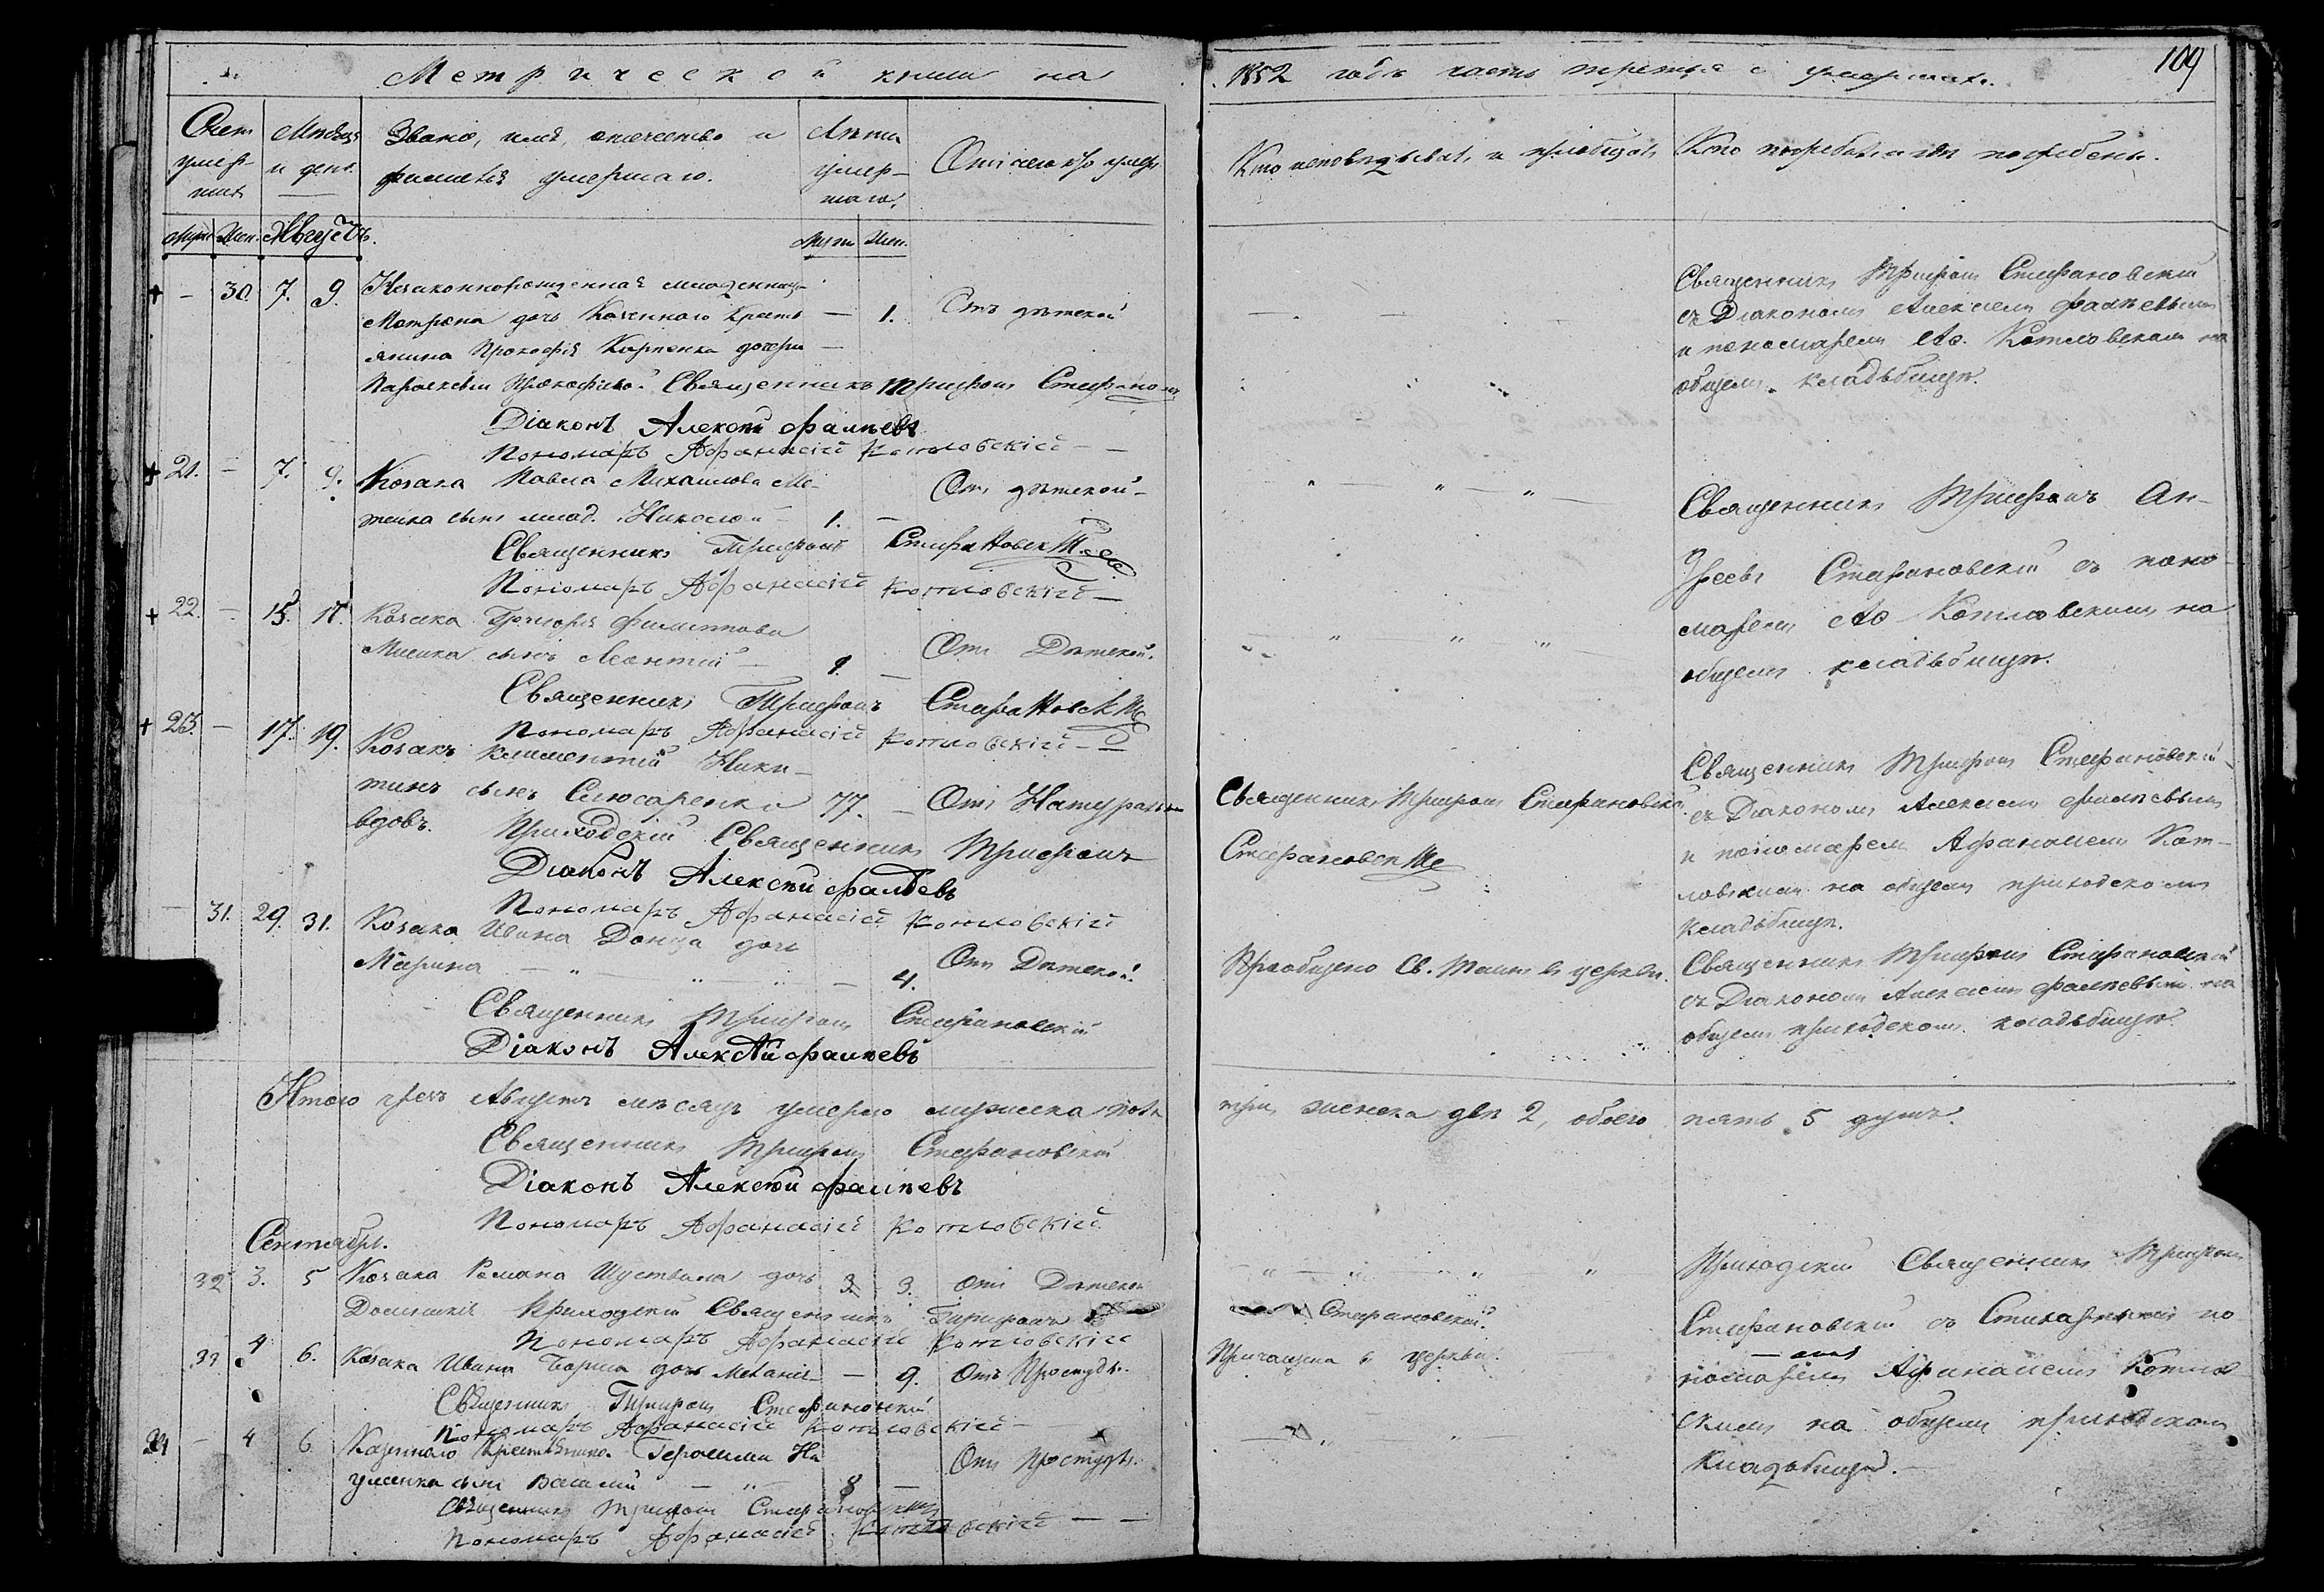 Метрической книги на
1852 годъ часть третья о умершихъ.
109
Счет умер-шихъ
Мѣсяцъ и день.
Званіе, имя, отчество и фамилія умершаго.
Лѣта умер-шаго.
Отъ чего умеръ
Кто исповѣдывалъ и пріобщалъ
Кто погребалъ и гдѣ погребены.
Муж. Жен. Августъ.
Муж. Жен.
– 30. 7. 9. Незаконнорожденная младеница
Матрона дочь Казенного Кресть – 1. Отъ дѣтской
янина Прокофія Карпенка дочери –
Параскевіи Прокофіевой Священникъ Трифонъ Стефанов
Діаконъ Алексѣй Фалѣевъ
Пономаръ Афанасій Котловскій
Священникъ Трифонъ Стефановскій
съ Діакономъ Алексѣемъ Фалѣевымъ
и пономаремъ Аф. Котловскимъ на
общемъ кладбищѣ.
21. – 7. 9. Козака Павла Михаилова
сынъ млад. Николай – 1. – Отъ дѣтской
Священникъ Трифонъ Стефановскій
Пономаръ Афанасій Котловскій
Священникъ Трифонъ Ан-
дреевъ Стефановскій съ поно
маремъ Аф Котловскимъ на
общемъ кладбищѣ.
22. – 15. 17. Козака Григорія Филиппова
сынъ Леонтій – 1. – Отъ Дѣтской.
Священникъ Трифонъ Стефановскій
Пономаръ Афанасій Котловскій
23. – 17. 19. Козакъ Климентій Ники-
тинъ сынъ Слюсаренко 77. – Отъ Натуральн
вдовъ. Приходскій Священникъ Трифонъ
Діаконъ Алексѣй Фалѣевъ
Пономаръ Афанасій Котловскій
Священникъ Трифонъ Стефановскій
Стефановскій
Священникъ Трифонъ Стефановскій
съ Діакономъ Алексѣемъ Фалѣевымъ
и пономаремъ Афанасіемъ Кот-
ловскимъ на общемъ приходскомъ
кладбищѣ.
– 31. 29. 31. Козака Ивана Донца дочь
Марина – 4. Отъ Дѣтской.
Священникъ Трифонъ Стефановскій
Діаконъ Алексѣй Фалѣевъ
Пріобщено Св. Таинъ въ церкви.
Священникъ Трифонъ Стефановскій
съ Діакономъ Алексѣемъ Фалѣевымъ на
общемъ приходскомъ кладбищѣ.
Итого чрезъ Августъ мѣсяцъ умерло мужеска пола
три, женска двѣ 2, обоего пять 5 душъ.
Священникъ Трифонъ Стефановскій
Діаконъ Алексѣй Фалѣевъ
Пономаръ Афанасій Котловскій
Сентябрь.
32 3. 5 Козака Романа дочь 3. Отъ Дѣтской
Домникія Приходскій Священникъ Трифонъ
Стефановскій.
Пономаръ Афанасій Котловскій
33 4 6. Козака Ивана дочь Меланія – 9. Отъ Простуды.
Священникъ Трифонъ Стефановскій
Пономаръ Афанасій Котловскій
Причащена в церкви.
24 – 4 6 Казенного Крестьянина Герасима На
уменка сынъ Василій – 8 – Отъ Простуды.
Священникъ Трифонъ Стефановскій
Пономаръ Афанасій Котловскій
Приходскій Священникъ Трифонъ
Стефановскій съ по
номаремъ Афанасіемъ Котлов
скимъ на общемъ приходскомъ
кладбищѣ.